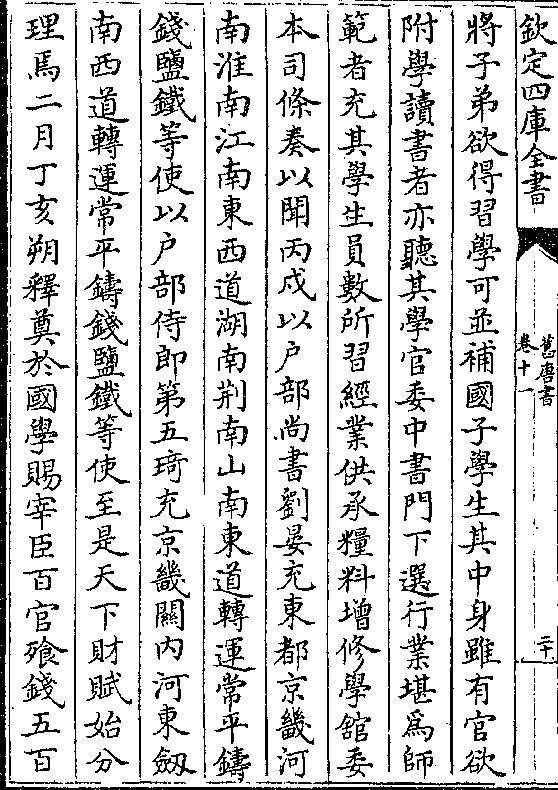 欽定四庫全書
舊唐書
卷十一
二十
將子弟欲得習學可並補國子學生其中身雖有官欲
附學讀書者亦聽其學官委中書門下選行業堪為師
範者充其學生員數所習經業供承糧料增修學舘委
本司條奏以聞丙戌以户部尚書劉晏充東都京畿河
南淮南江南東西道湖南荆南山南東道轉運常平鑄
錢鹽鐵等使以户部侍郎第五琦充京畿關内河東劔
南西道轉運常平鑄錢鹽鐵等使至是天下財賦始分
理焉二月丁亥朔釋奠於國學賜宰臣百官飱錢五百